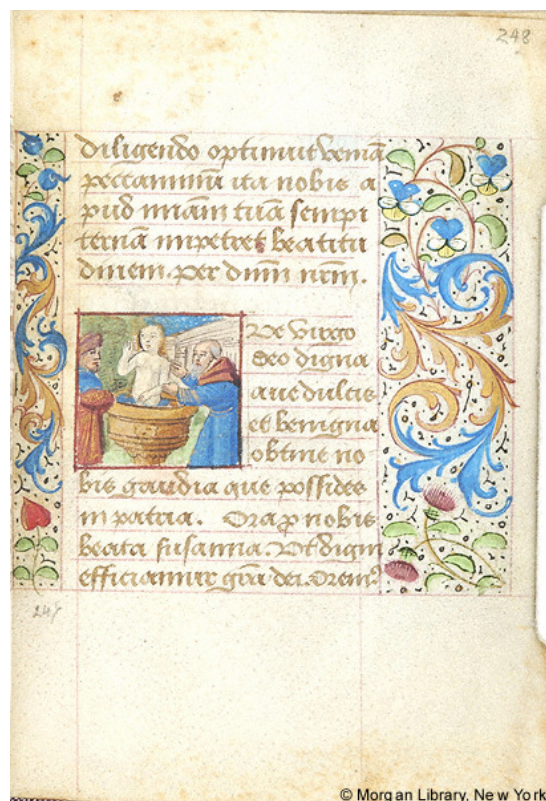 248
diligendo optinuit veniā
peccaminū ita nobis a
pud miām tuā sempi
ternā impetret beatitu
dinem. per dnm nrm.
Ave virgo
deo digna
ave dulcis
et benigna
obtine no
bis gaudia que possides
in patria. Ora p nobis
beata susanna. Ut digni
efficiamur grā dei. Orem9
247
© Morgan Library, New York